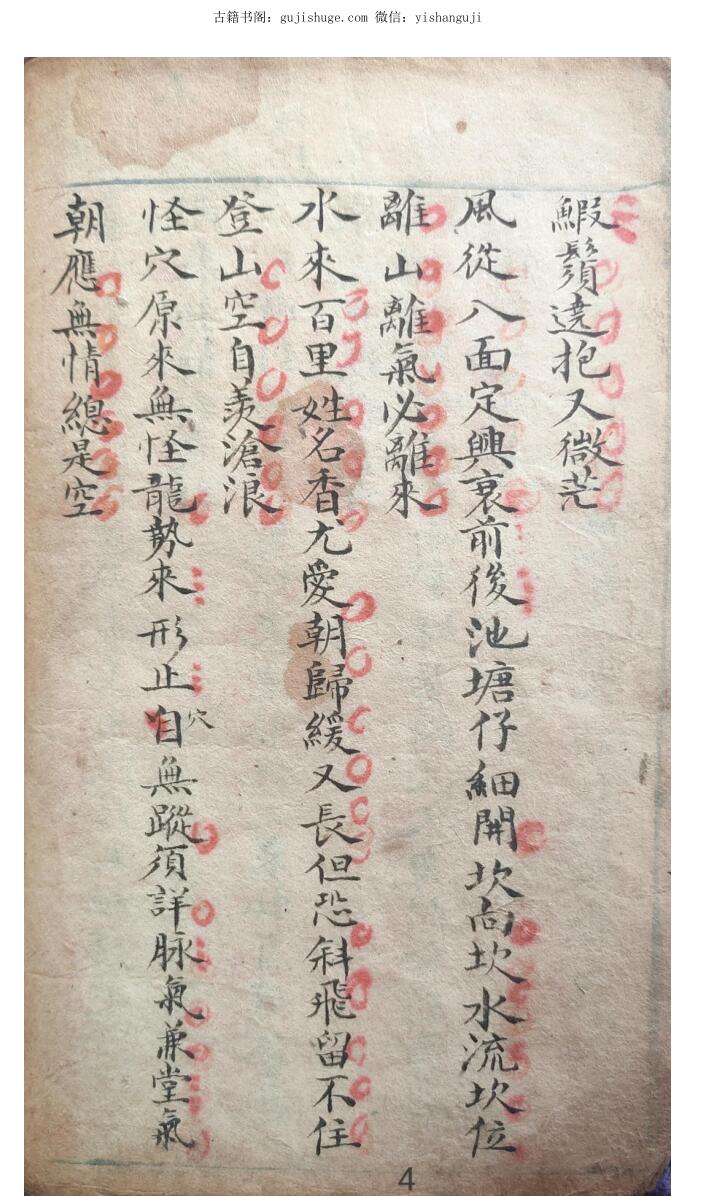 古籍书阁：gujishuge.com 微信：yishanguji
鰕鬚遶抱又微茫
風從八面定興衰前後池塘仔細開坎向坎水流坎位
離山離氣必離來
水來百里姓名香尤愛朝歸緩又長但恐斜飛留不住
登山空自羨滄浪
怪穴原來無怪龍勢來形止自穴無蹤須詳脉氣兼堂氣
朝應無情總是空
4